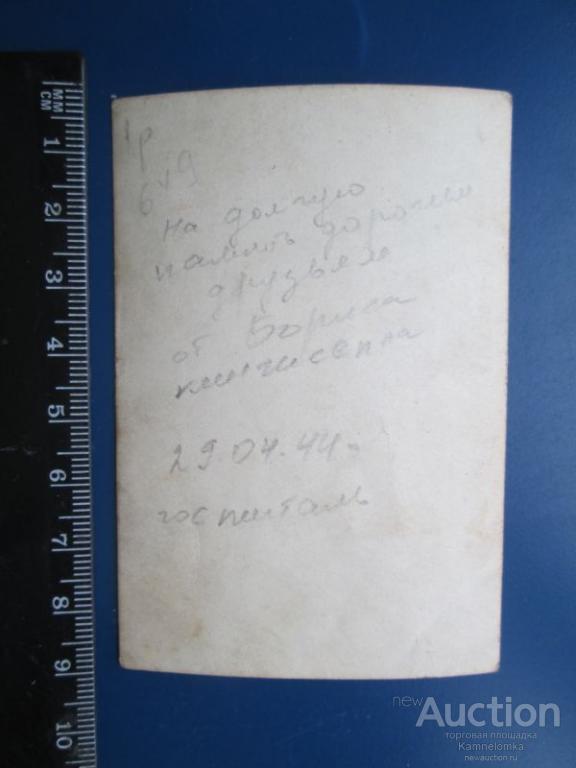 мм
см
1
2
3
4
5
6
7
8
9
10
1р
6 v9
на долгую
память дорогим
друзьям
от Бориса
кингисеппа
29.04.44г
госпиталь
newAuction
торговая площадка
Kamnelomka
newauction.ru